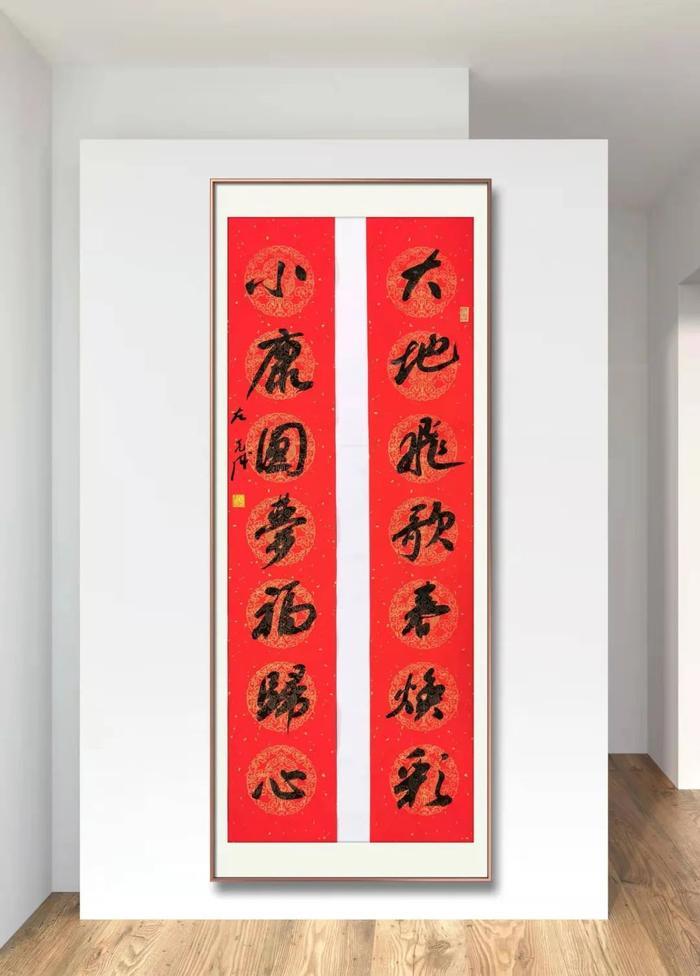 大地飛歌春焕彩
小康圓夢福歸心